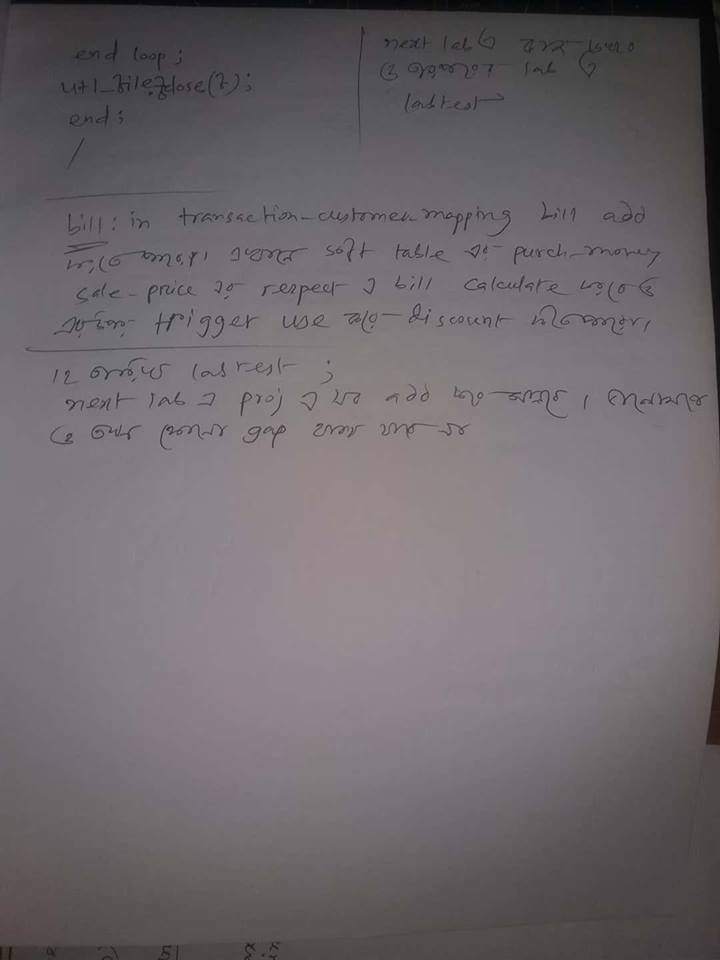 end loop;
utl_file.fclose(f);
end;
/
next lab এ
lab
labtest →
bill: in transaction_customer_mapping bill add
করতে পারো। এখানে soft table এর purch_money
sale_price এর respect এ bill calculate করতে
trigger use করে discount দিতে পারো।
12 labtest ;
next lab এ proj এ সব add করে আসবে।
gap থাকা যাবে না